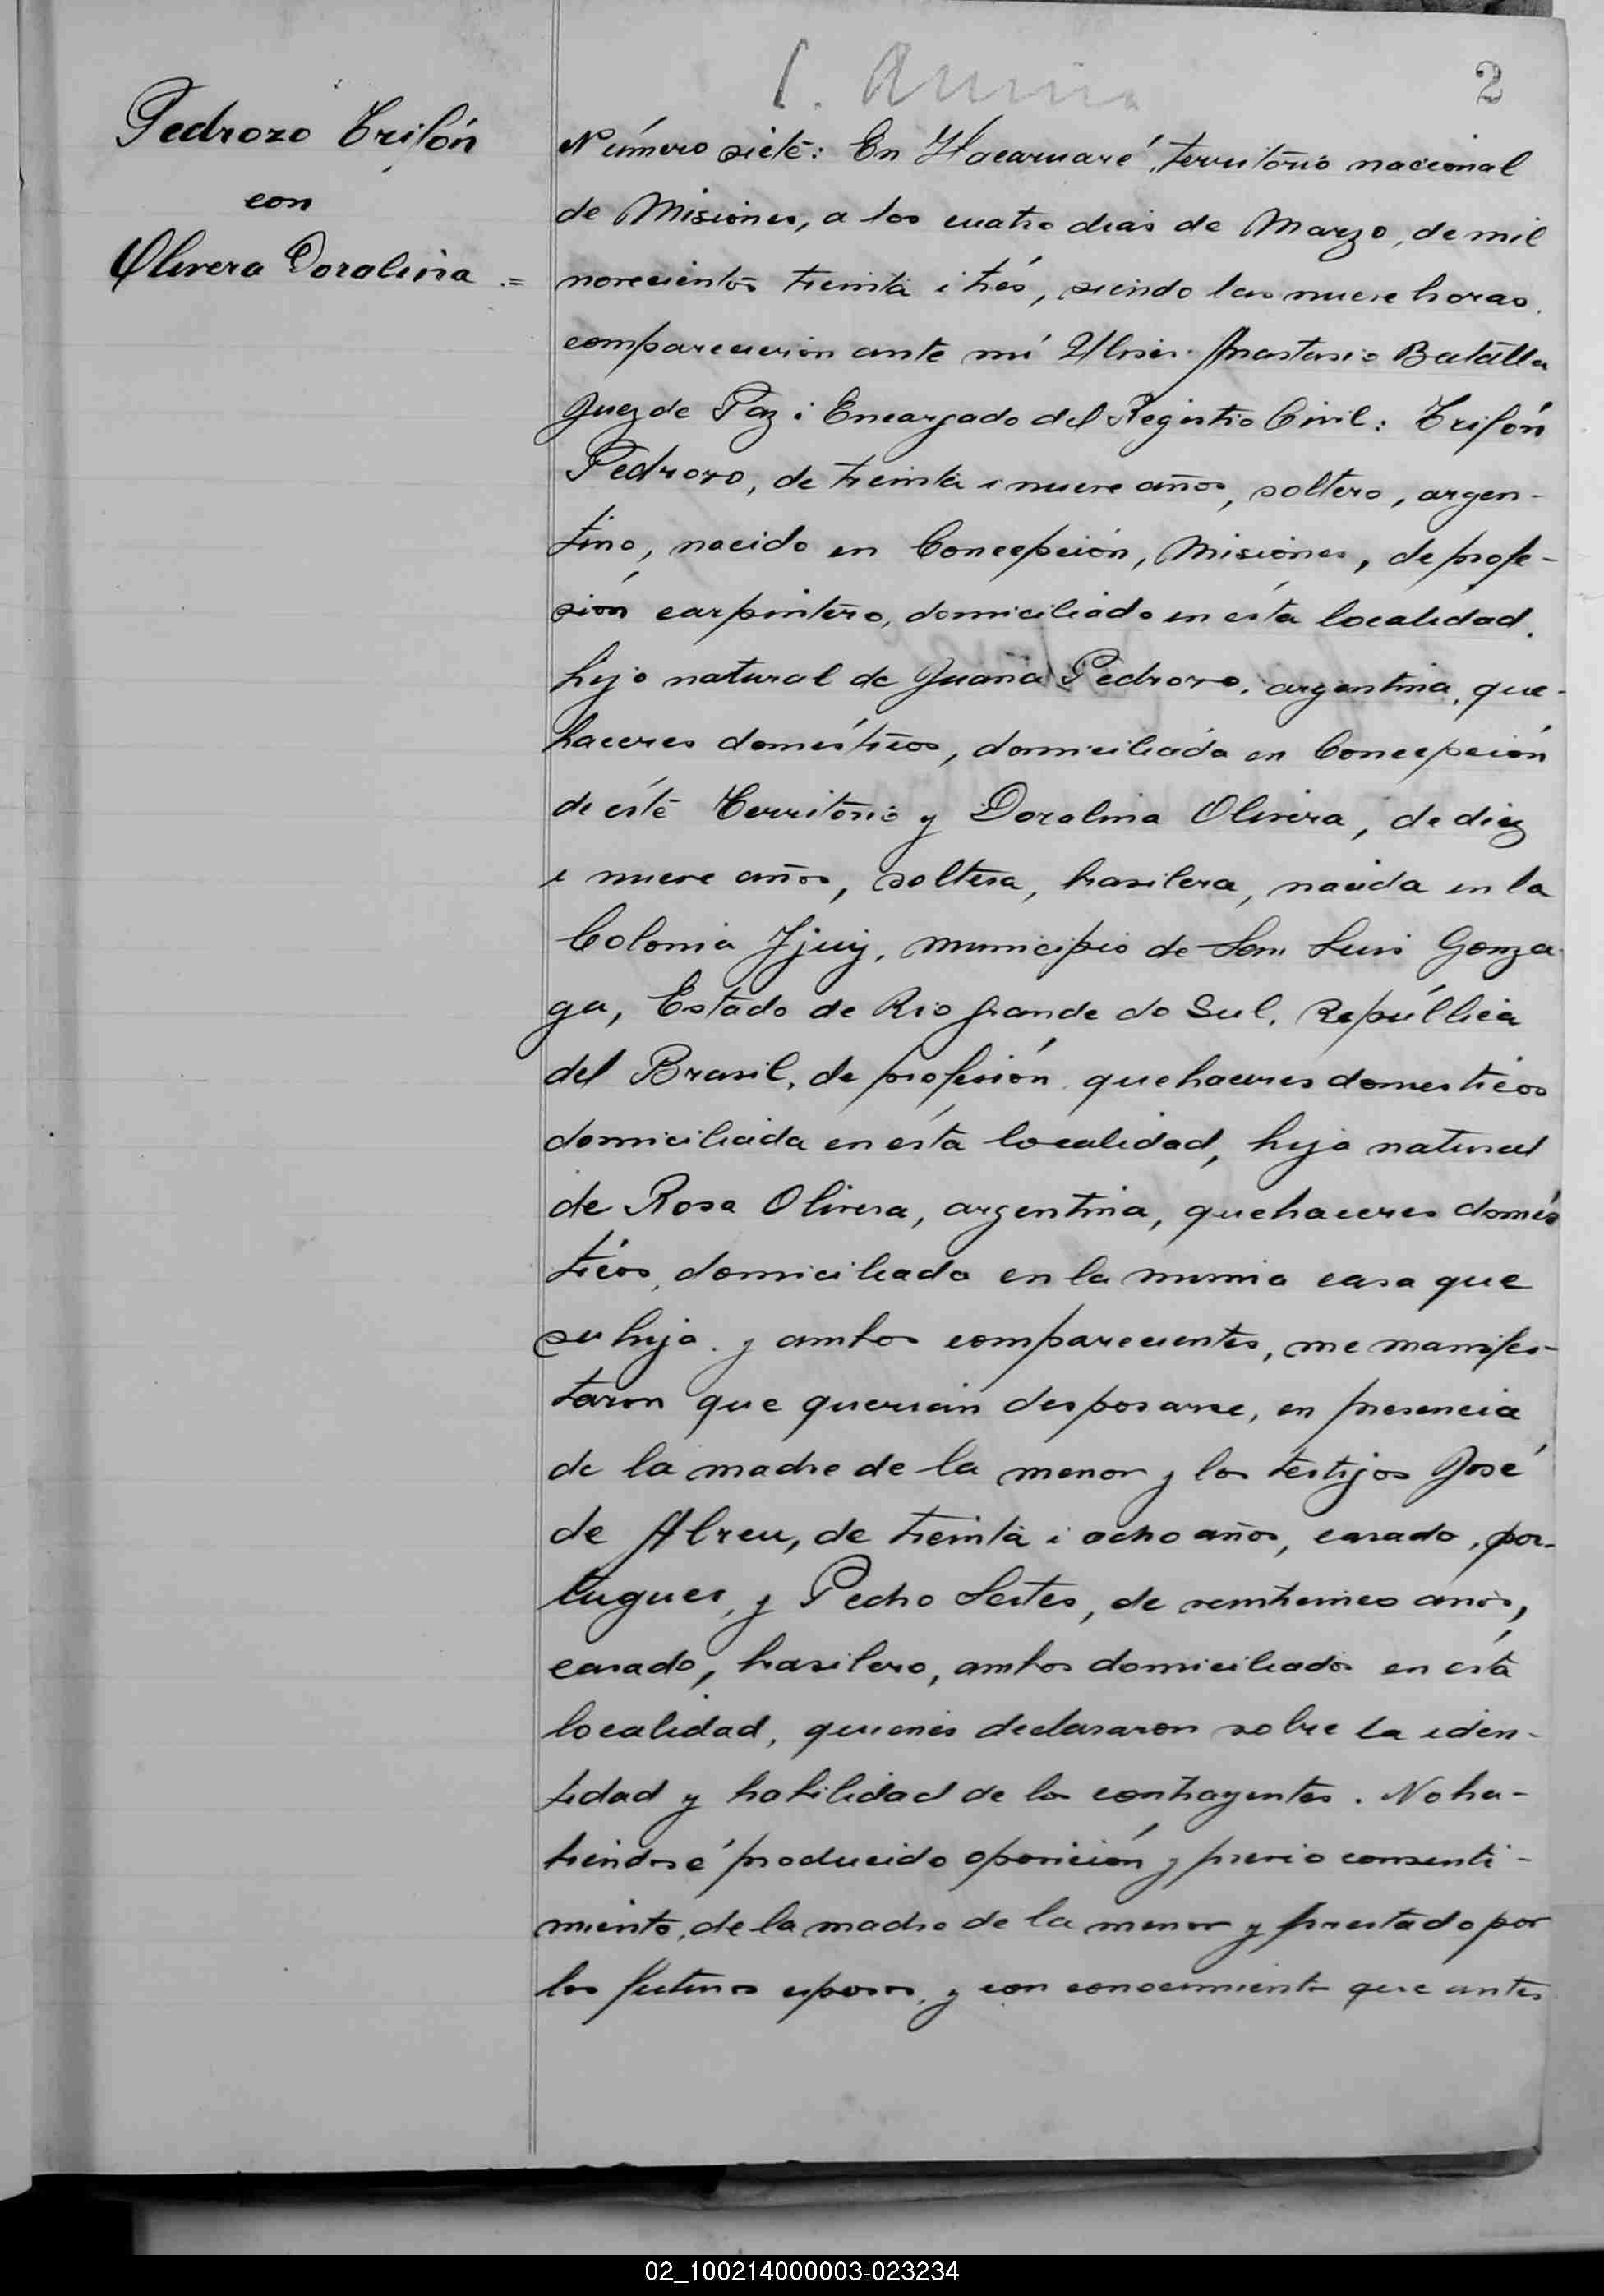 2
Pedrozo Trifón
con
Olivera Doralina =
Número siete: En Itacaruaré, territorio nacional
de Misiones, a los cuatro dias de Marzo, de mil
novecientos treinta i trés, siendo las nueve horas.
comparecieron ante mí Anastasio Batalla
Juez de Paz i Encargado del Registro Civil: Trifón
Pedrozo, de treinta i nueve años, soltero, argen-
tino, nacido en Concepción, Misiones, de profe-
sión carpintero, domiciliado en ésta localidad.
hijo natural de Juana Pedrozo, argentina, que-
haceres domésticos, domiciliada en Concepción
de éste Territorio y Doralina Olivera, de diez
i nueve años, soltera, brasilera, nacida en la
Colonia Ijuy, municipio de San Luis Gonza-
ga, Estado de Rio Grande do Sul, República
del Brasil, de profesión quehaceres domesticos
domiciliada en ésta localidad, hija natural
de Rosa Olivera, argentina, quehaceres domés
ticos, domiciliada en la misma casa que
su hija. y ambos comparecientes, me manifes-
taron que querian desposarse, en presencia
de la madre de la menor y los testijos José
de Abreu, de treinta i ocho años, casado, por-
tugues, y Pedro Leites, de veinticinco anos,
casado, brasilero, ambos domiciliados en ésta
localidad, quienes declararon sobre la iden-
tidad y habilidad de los contrayentes. No ha-
biendosé producido oposición y previo consenti-
miento, de la madre de la menor y prestado por
los futuros esposos, y con conocimiento que antes
02_100214000003-023234